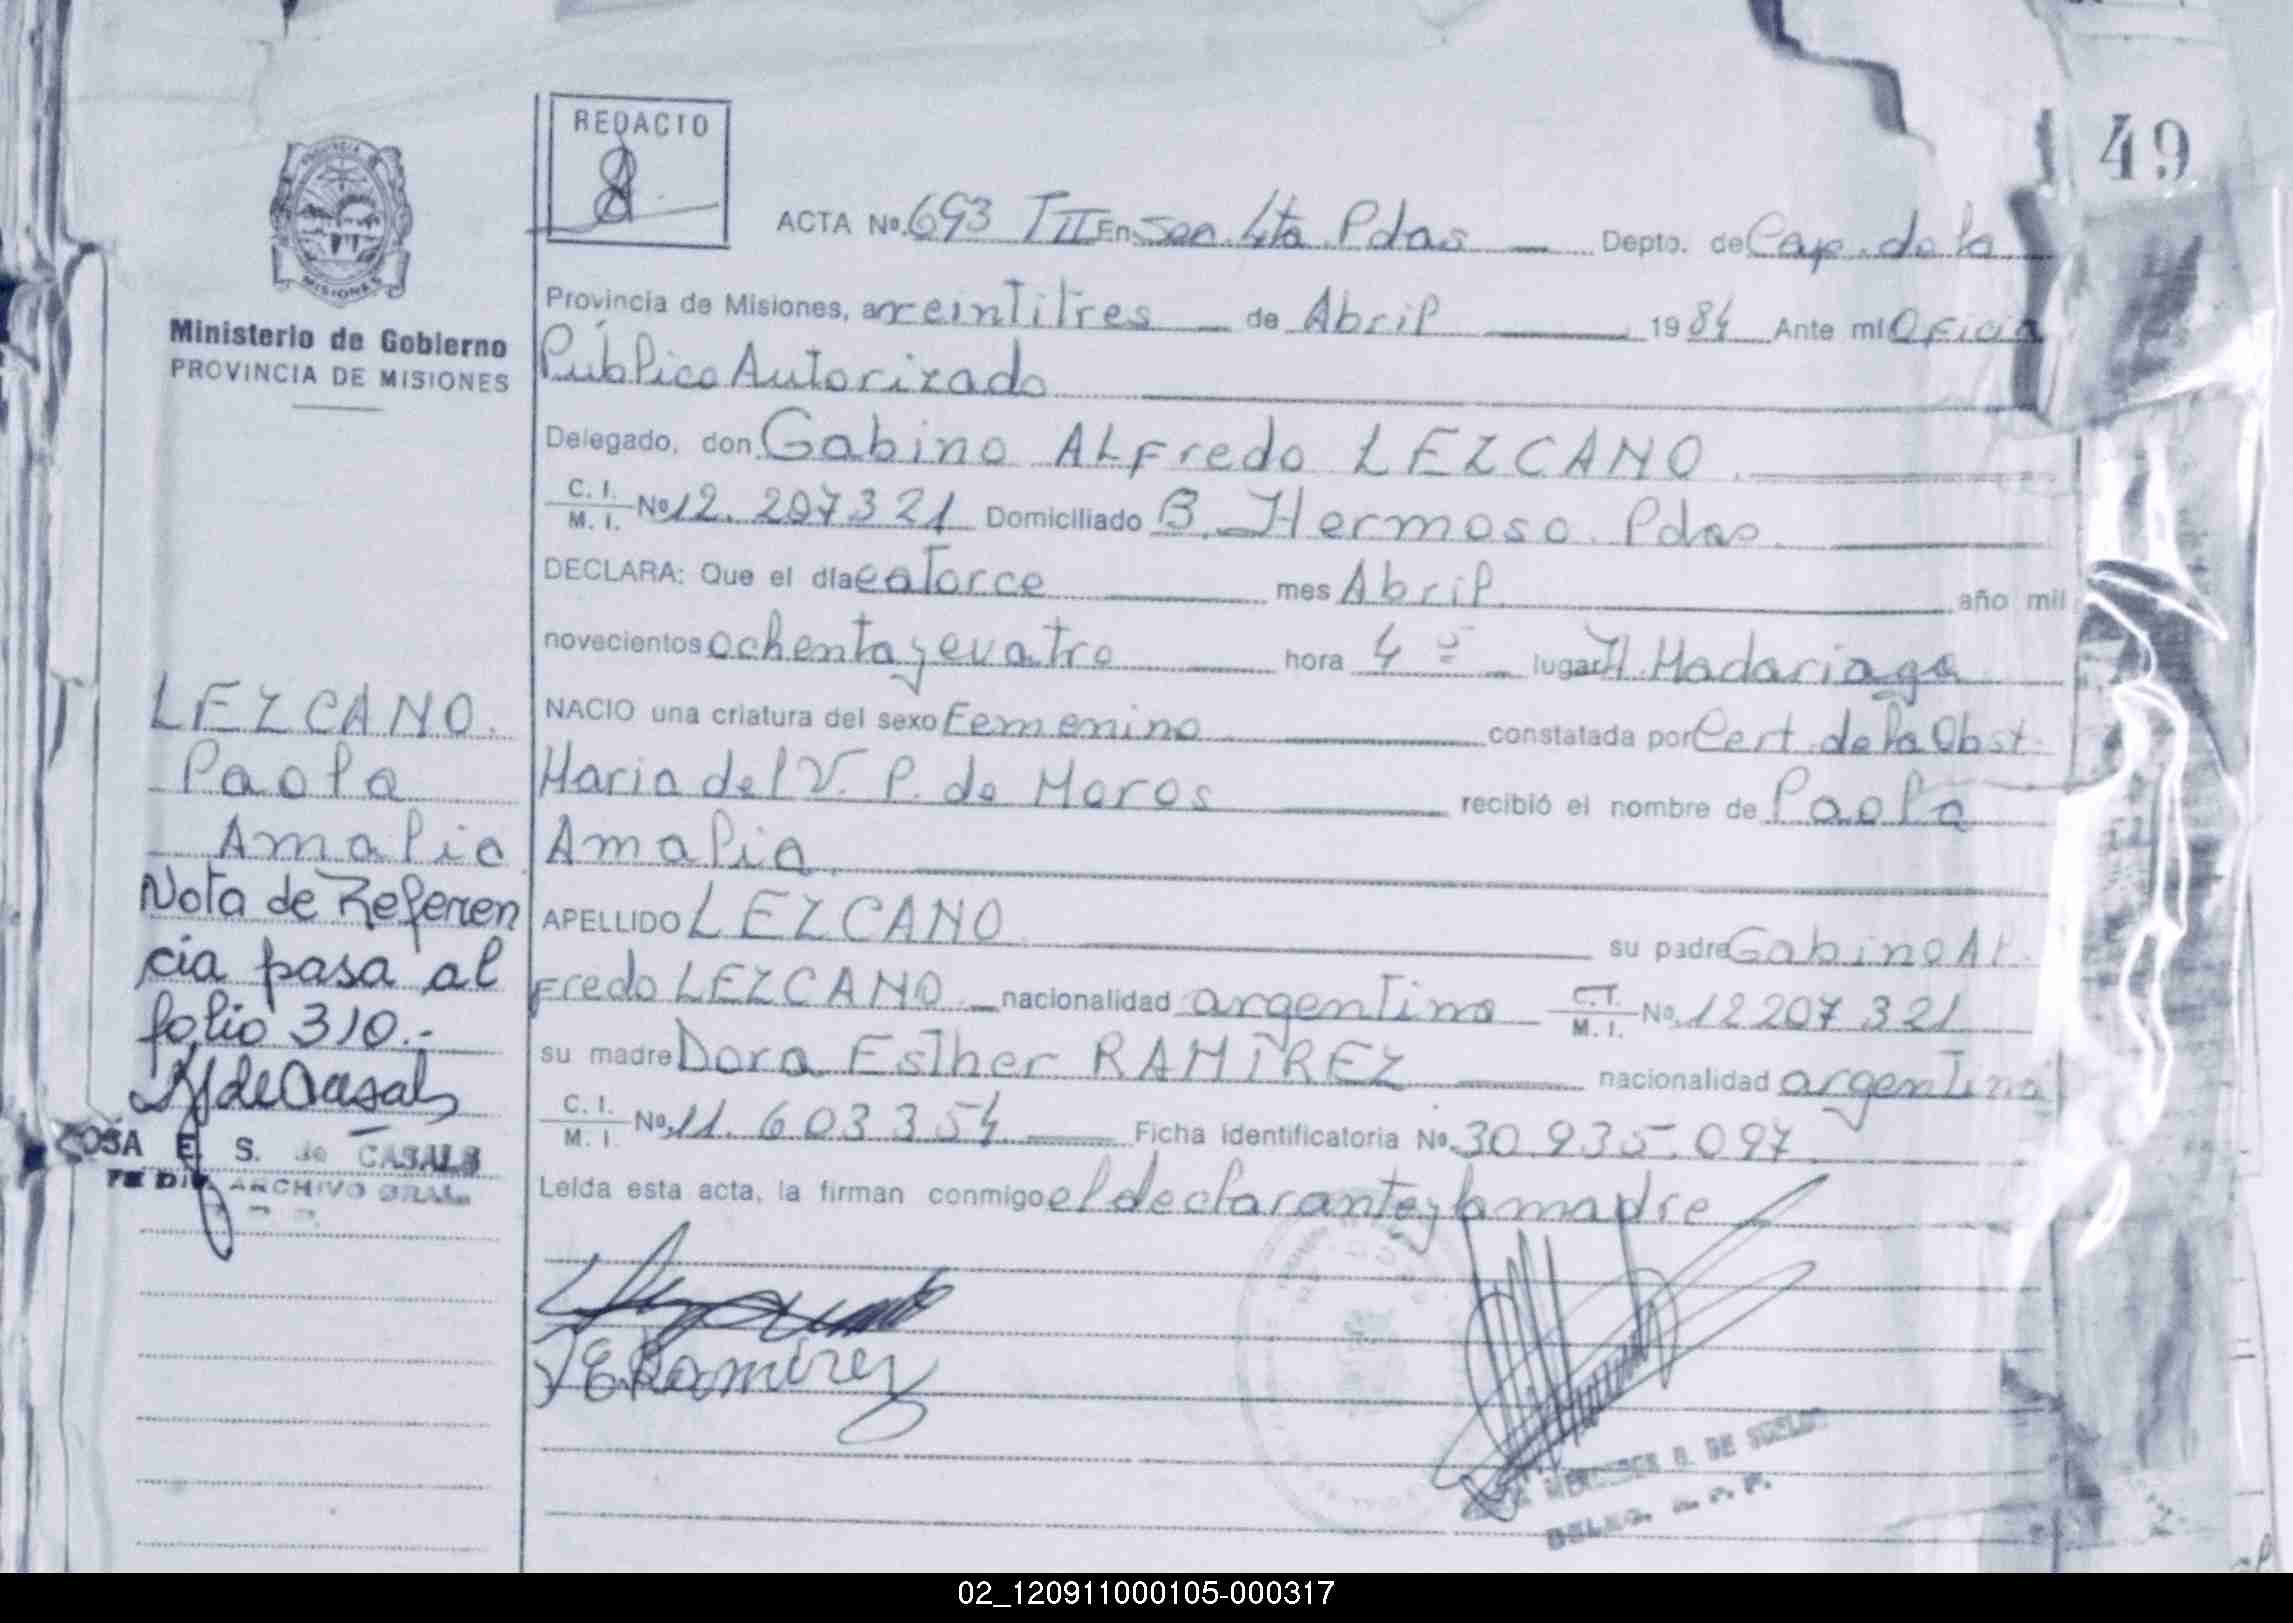 49
REDACTO
PROVINCIA DE
MISIONES
Ministerio de Gobierno
PROVINCIA DE MISIONES
ACTA No. 693 T II En Sec. 4ta Pdas Depto. de Cap. de la
Provincia de Misiones, a veintitres de Abril 1984 Ante mi Oficia
Público Autorizado
Delegado, don Gabino ALFredo LEZCANO
C. I.
M. I. No 12.207321 Domiciliado B. Hermoso. Pdas.
DECLARA: Que el día catorce mes Abril año mil
novecientos ochenta y cuatro hora 4 lugar H. Madariaga
NACIO una criatura del sexo Femenino constatada por Cert. de la Obst.
Maria del V. P. de Moros recibió el nombre de Paola
Amalia
APELLIDO LEZCANO su padre Gabino Al
Fredo LEZCANO nacionalidad argentino C.I. M. I. No. 12207321
su madre Dora Esther RAMIREZ nacionalidad argentina
C. I.
M. I. No. 11.603354 Ficha identificatoria No. 30.935.097
Leída esta acta, la firman conmigo el declarante y la madre
LEZCANO.
Paola
Amalia
Nota de Referen
cia pasa al
folio 310.-
E. S. de CASALS
ARCHIVO GRAL.
Ramirez
02_120911000105-000317